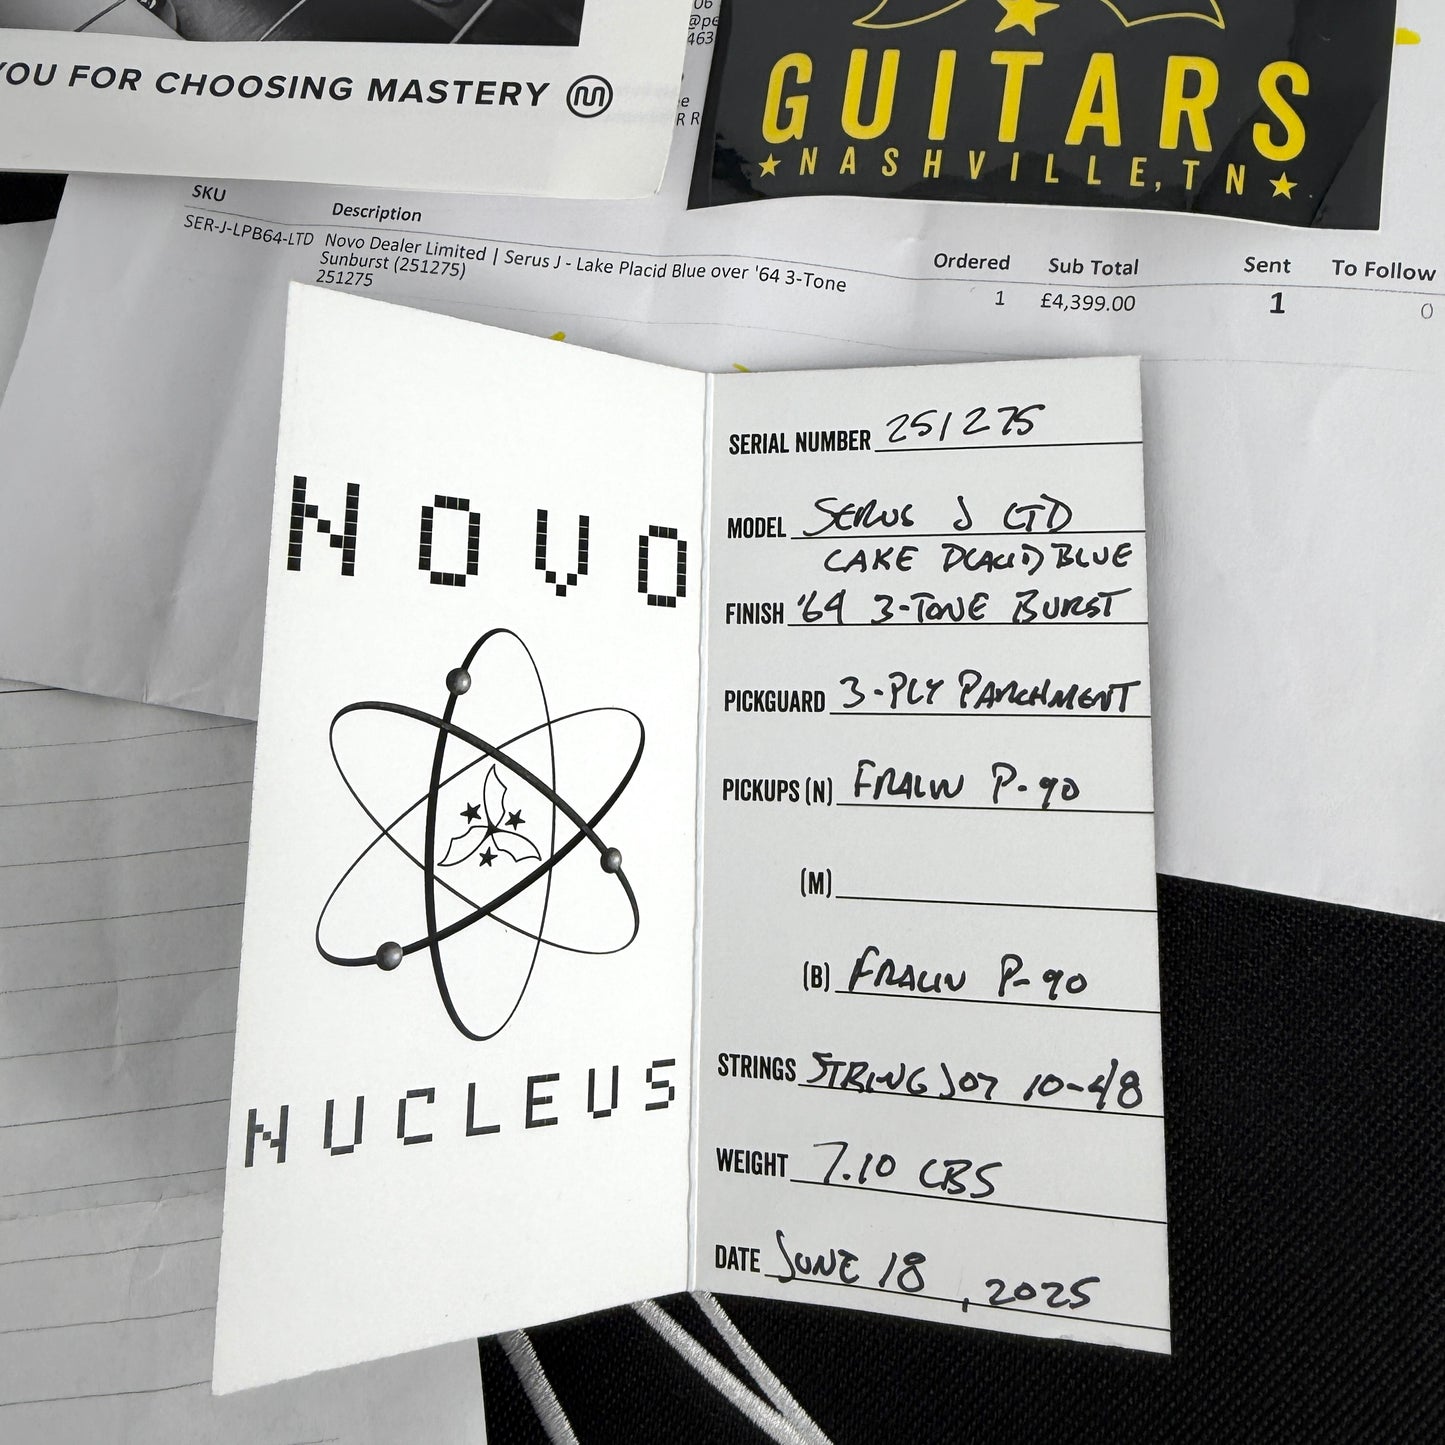 YOU FOR CHOOSING MASTERY
06
@pe
463
e
R R
GUITARS
NASHVILLE, TN
SKU Description Ordered Sub Total Sent To Follow
SER-J-LPB64-LTD Novo Dealer Limited | Serus J - Lake Placid Blue over '64 3-Tone 1 £4,399.00 1 0
Sunburst (251275)
251275
NOVO
NUCLEUS
SERIAL NUMBER 251275
MODEL SERUS J LTD
LAKE PLACID BLUE
FINISH '64 3-TONE BURST
PICKGUARD 3-PLY PARCHMENT
PICKUPS (N) FRALIN P-90
(M)
(B) FRALIN P-90
STRINGS STRINGJOY 10-48
WEIGHT 7.10 LBS
DATE JUNE 18, 2025